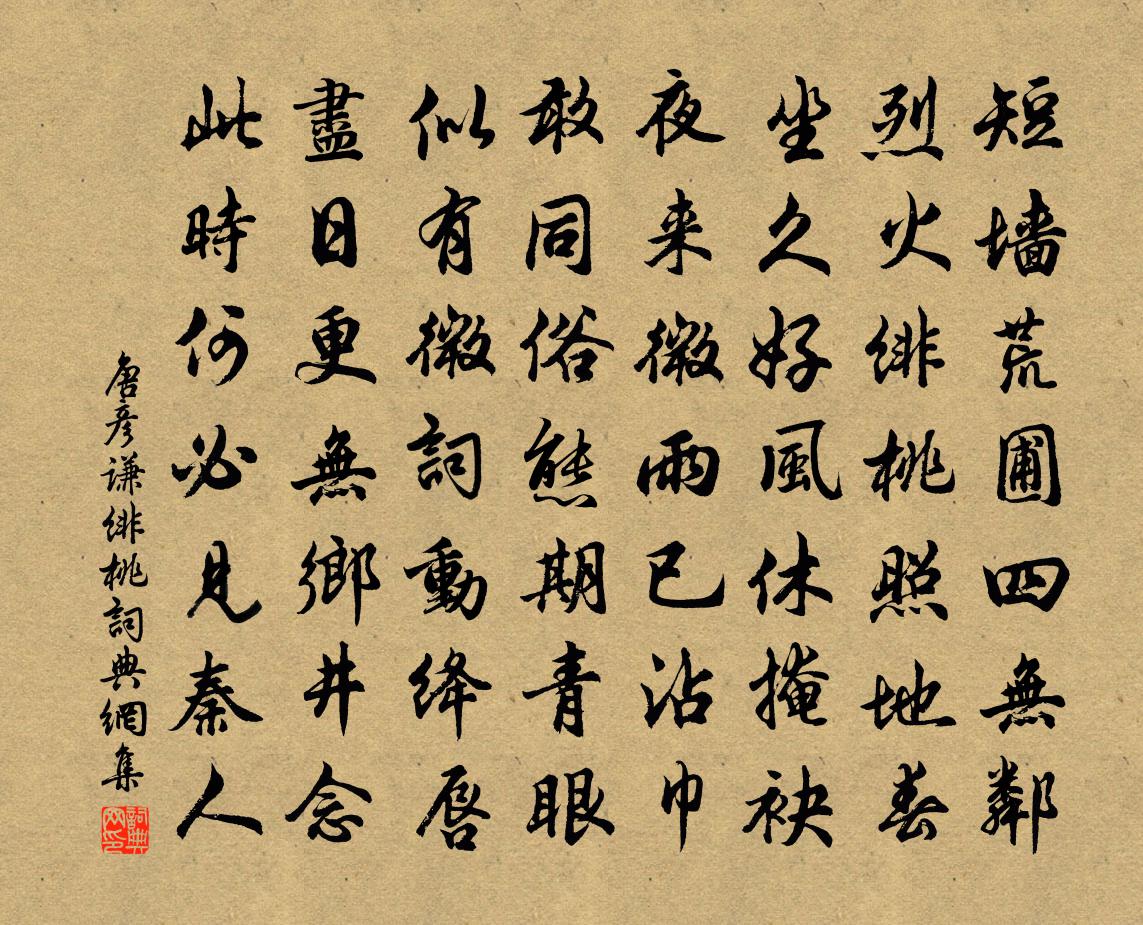 短墻荒圃四無鄰
烈火緋桃照地春
坐久好風休掩袂
夜来微雨已沾巾
敢同俗態期青眼
似有微詞動絳唇
盡日更無鄉井念
此時何必見秦人
唐彦謙緋桃詞典網集
詞典網印